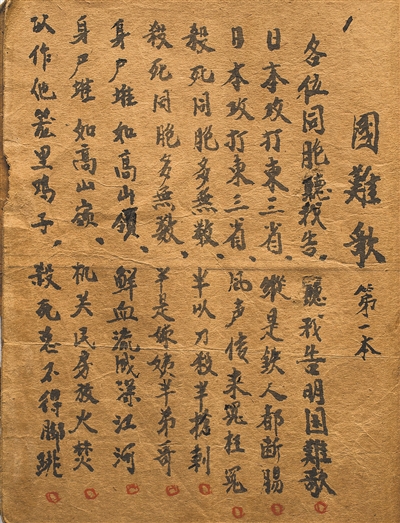 國難歌 第一本
各位同胞聽我告、聽我告明国難歌
日本攻打東三省、縱是鉄人都断腸
日本攻打東三省、风声傳来冤枉冤
殺死同胞多無数、半以刀殺半搶刺
殺死同胞多無数、半是姊半弟哥
身尸堆如高山嶺、鮮血流成深江河
身尸堆如高山嶺、机关民房放火焚
以作他篮里鸡子、殺死不得脚跳